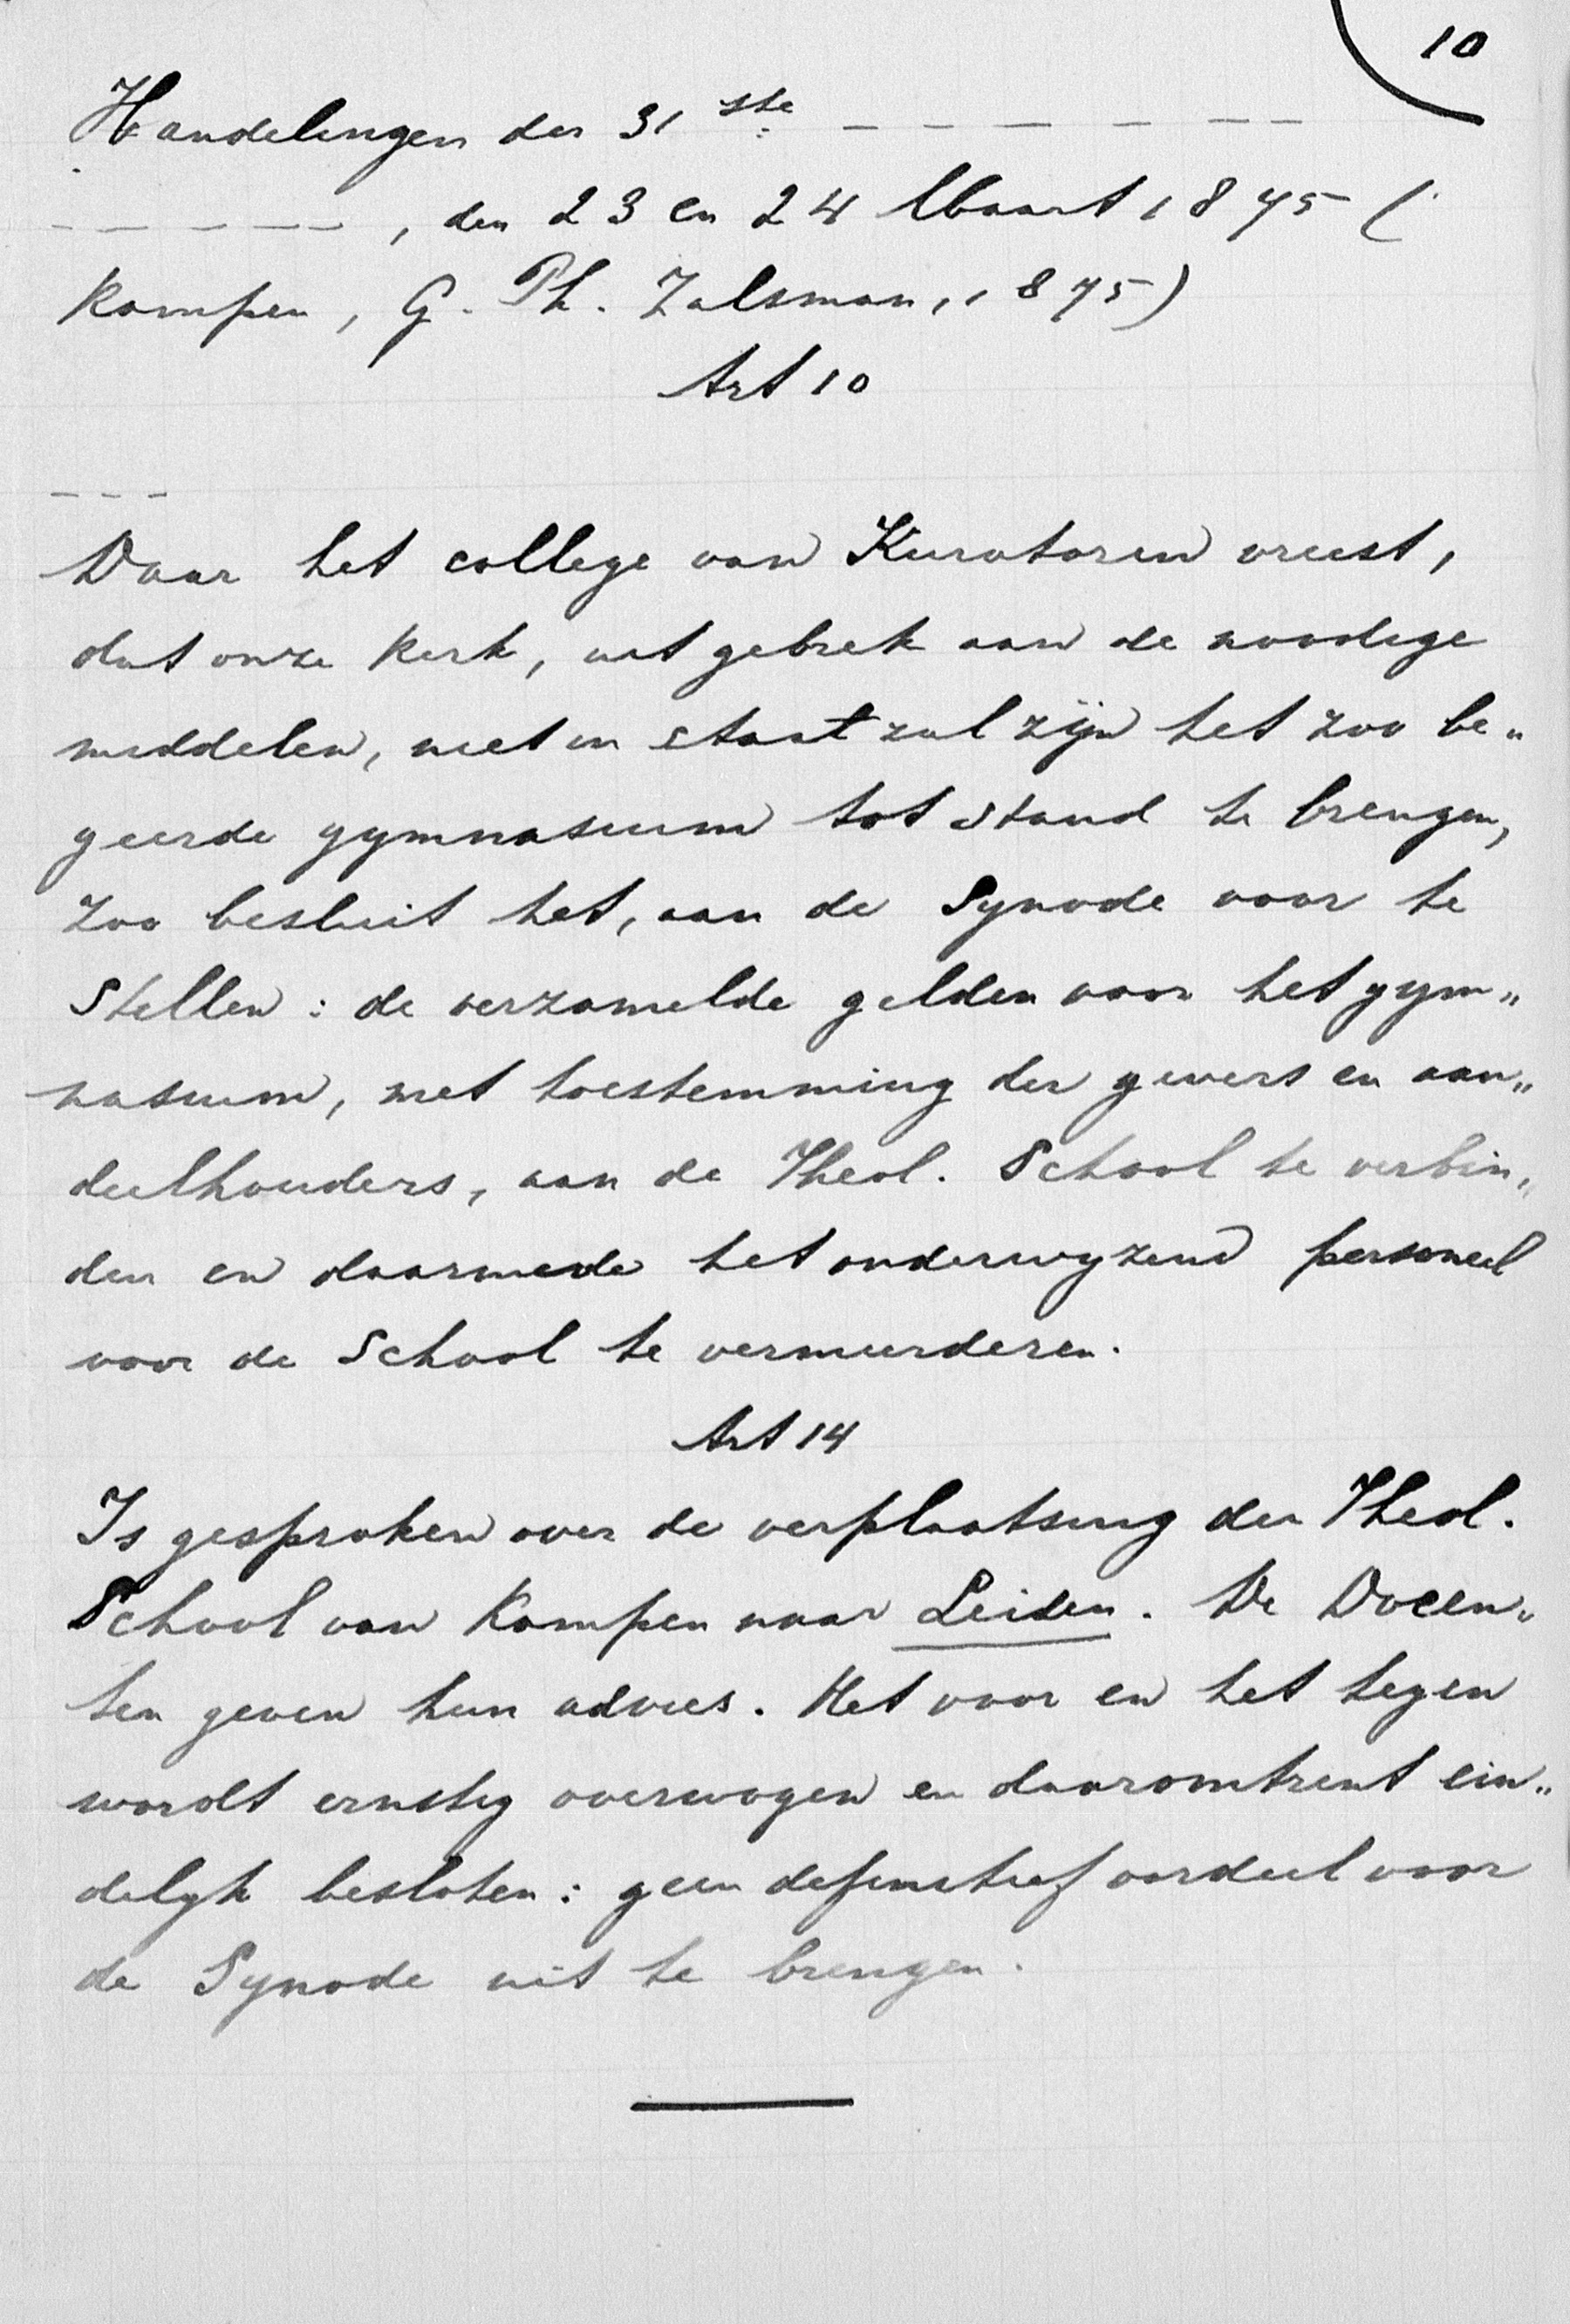 10
Handelingen der 31ste — — — — — —
— — — — — —, den 23 en 24 Maart 1875 (
Kampen, G. Ph. Zalsman, 1875)
Art 10
— — —
Daar het college van Kuratoren vreest,
dat onze Kerk, uit gebrek aan de noodige
middelen, niet in staat zal zijn het zoo be„
geerde gymnasium tot stand te brengen,
zoo besluit het, aan de Synode voor te
stellen: de verzamelde gelden voor het gym„
nasium, met toestemming der gevers en aan„
deelhouders, aan de Theol. School te verbin„
den en daarmede het onderwyzend personeel
voor de School te vermeerderen.
Art 14
Is gesproken over de verplaatsing der Theol.
School van Kampen naar Leiden. De Docen„
ten geven hun advies. Het voor en het tegen
wordt ernstig overwogen en daaromtrent ein„
delyk besloten: geen definitief oordeel voor
de Synode uit te brengen.